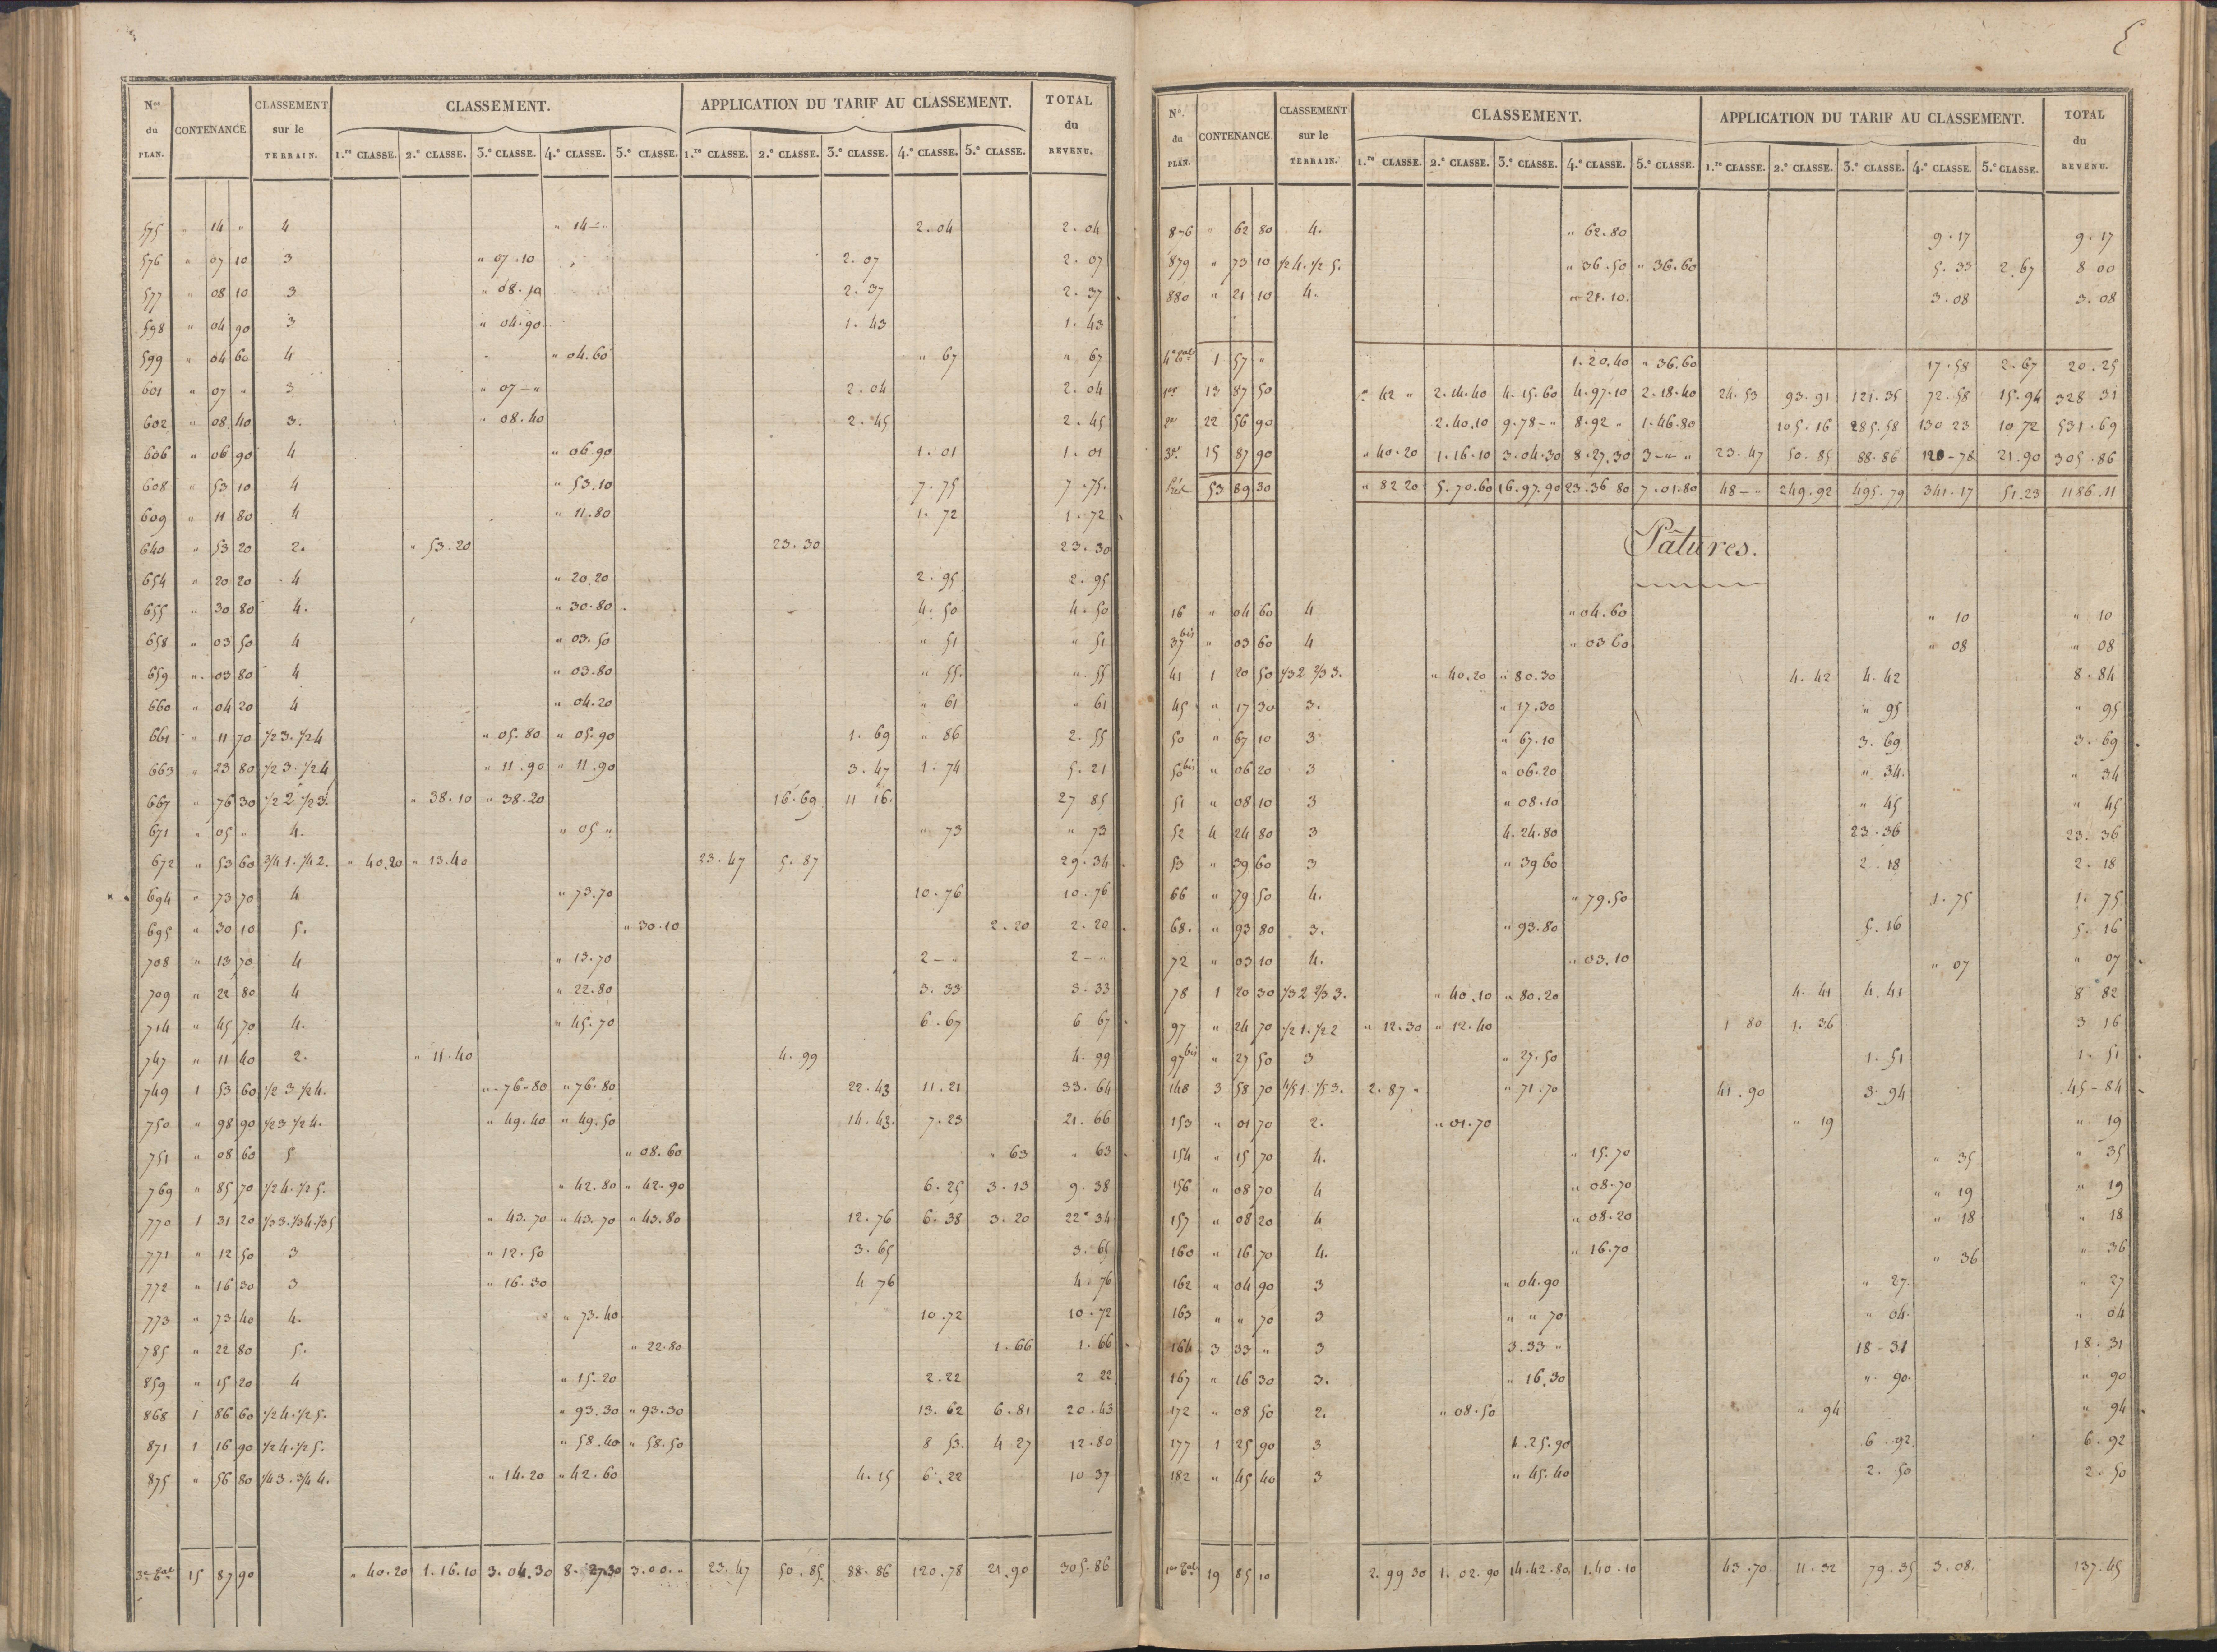 N.os du PLAN. CONTENANCE CLASSEMENT sur le TERRAIN. CLASSEMENT. APPLICATION DU TARIF AU CLASSEMENT. TOTAL du REVENU.
1.re CLASSE. 2.e CLASSE. 3.e CLASSE. 4.e CLASSE. 5.e CLASSE. 1.re CLASSE. 2.e CLASSE. 3.e CLASSE. 4.e CLASSE. 5.e CLASSE.
575 " 14 " 4 " 14 - " 2. 04 2. 04
576 " 07 10 3 " 07. 10 2. 07 2. 07
577 " 08 10 3 " 08. 10 2. 37 2. 37
598 " 04 90 3 " 04. 90 1. 43 1. 43
599 " 04 60 4 " 04. 60 " 67 " 67
601 " 07 " 3 " 07 - " 2. 04 2. 04
602 " 08 40 3. " 08. 40 2. 45 2. 45
606 " 06 90 4 " 06. 90 1. 01 1. 01
608 " 53 10 4 " 53. 10 7. 75 7. 75.
609 " 11 80 4 " 11. 80 1. 72 1. 72
640 " 53 20 2. " 53. 20 23. 30 23. 30
654 " 20 20 4 " 20. 20 2. 95 2. 95
655 " 30 80 4. " 30. 80 4. 50 4. 50
658 " 03 50 4 " 03. 50 " 51 " 51
659 " 03 80 4 " 03. 80 " 55. " 55
660 " 04 20 4 " 04. 20 " 61 " 61
661 " 11 70 1/2 3. 1/2 4 " 05. 80 " 05. 90 1. 69 " 86 2. 55
663 " 23 80 1/2 3. 1/2 4 " 11. 90 " 11. 90 3. 47 1. 74 5. 21
667 " 76 30 1/2 2. 1/2 3. " 38. 10 " 38. 20 16. 69 11 16. 27 85
671 " 05 " 4. " 05 " " 73 " 73
672 " 53 60 3/4 1. 1/4 2. " 40. 20 " 13. 40 23. 47 5. 87 29. 34
694 " 73 70 4 " 73. 70 10. 76 10. 76
695 " 30 10 5. " 30. 10 2. 20 2. 20
708 " 13 70 4 " 13. 70 2 - " 2 - "
709 " 22 80 4 " 22. 80 3. 33 3. 33
714 " 45 70 4. " 45. 70 6. 67 6 67
747 " 11 40 2. " 11. 40 4. 99 4. 99
749 1 53 60 1/2 3 1/2 4. " 76 - 80 " 76. 80 22. 43 11. 21 33. 64
750 " 98 90 1/2 3 1/2 4. " 49. 40 " 49. 50 14. 43. 7. 23 21. 66
751 " 08 60 5 " 08. 60 " 63 " 63
769 " 85 70 1/2 4. 1/2 5. " 42. 80 " 42. 90 6. 25 3. 13 9. 38
770 1 31 20 1/3 3. 1/3 4. 1/3 5 " 43. 70 " 43. 70 " 43. 80 12. 76 6. 38 3. 20 22. 34
771 " 12 50 3 " 12. 50 3. 65 3. 65
772 " 16 30 3 " 16. 30 4 76 4. 76
773 " 73 40 4. " 73. 40 10. 72 10. 72
785 " 22 80 5. " 22. 80 1. 66 1. 66
859 " 15 20 4 " 15. 20 2. 22 2 22
868 1 86 60 1/2 4. 1/2 5. " 93. 30 " 93. 30 13. 62 6. 81 20. 43
871 1 16 90 1/2 4. 1/2 5. " 58. 40 " 58. 50 8 53. 4 27 12. 80
875 " 56 80 1/4 3. 3/4 4. " 14. 20 " 42. 60 4. 15 6. 22 10 37
3e Total 15 87 90 " 40. 20 1. 16. 10 3. 04. 30 8. 27. 30 3. 00. " 23. 47 50. 85. 88. 86 120. 78 21. 90 305. 86
N.o du PLAN. CONTENANCE. CLASSEMENT sur le TERRAIN. CLASSEMENT. APPLICATION DU TARIF AU CLASSEMENT. TOTAL du REVENU.
1.re CLASSE. 2.e CLASSE. 3.e CLASSE. 4.e CLASSE. 5.e CLASSE. 1.re CLASSE. 2.e CLASSE. 3.e CLASSE. 4.e CLASSE. 5.e CLASSE.
876 " 62 80 4. " 62. 80 9. 17 9. 17
879 " 73 10 1/2 4. 1/2 5. " 36. 50 " 36. 60 5. 33 2. 67 8 00
880 " 21 10 4. " 21. 10. 3. 08 3. 08
4e Total 1 57 " 1. 20. 40 " 36. 60 17. 58 2. 67 20. 25
1er 13 87 50 " 42 " 2. 14. 40 4. 15. 60 4. 97. 10 2. 18. 40 24. 53 93. 91 121. 35 72. 58 15. 94 328 31
2e 22 56 90 2. 40. 10 9. 78 - " 8. 92 " 1. 46. 80 105. 16 285. 58 130 23 10 72 531. 69
3e. 15 87 90 " 40. 20 1. 16. 10 3. 04. 30 8. 27. 30 3 - " - " 23. 47 50. 85 88. 86 120 - 78 21. 90 305. 86
53 89 30 " 82 20 5. 70. 60 16. 97. 90 23. 36 80 7. 01. 80 48 - " 249. 92 495. 79 341. 17 51. 23 1186. 11
Pâtures.
16 " 04 60 4 " 04. 60 " 10 " 10
37 bis " 03 60 4 " 03 60 " 08 " 08
41 1 20 50 1/3 2 2/3 3. " 40. 20 " 80. 30 4. 42 4. 42 8. 84
45 " 17 30 3. " 17. 30 " 95 " 95
50 " 67 10 3 " 67. 10 3. 69 3. 69
50 bis " 06 20 3 " 06. 20 " 34. " 34
51 " 08 10 3 " 08. 10 " 45 " 45
52 4 24 80 3 4. 24. 80 23. 36 23. 36
53 " 39 60 3 " 39 60 2. 18 2. 18
66 " 79 50 4. " 79. 50 1. 75 1. 75
68. " 93 80 3. " 93. 80 5. 16 5. 16
72 " 03 10 4. " 03. 10 " 07 " 07
78 1 20 30 1/3 2 2/3 3. " 40. 10 " 80. 20 4. 41 4. 41 8 82
97 " 24 70 1/2 1. 1/2 2 " 12. 30 " 12. 40 1 80 1. 36 3 16
97 bis " 27 50 3 " 27. 50 1. 51 1. 51
148 3 58 70 4/5 1. 1/5 3. 2. 87 " " 71. 70 41. 90 3. 94 45 - 84
153 " 01 70 2. " 01. 70 " 19 " 19
154 " 15 70 4. " 15. 70 " 35 " 35
156 " 08 70 4 " 08. 70 " 19 " 19
157 " 08 20 4 " 08. 20 " 18 " 18
160 " 16 70 4. " 16. 70 " 36 " 36
162 " 04 90 3 " 04. 90 " 27. " 27
163 " " 70 3 " " 70 " 04. " 04
164 3 33 " 3 3. 33 " 18 - 31 18. 31
167 " 16 30 3. " 16. 30 " 90. " 90
172 " 08 50 2. " 08. 50 " 94 " 94
177 1 25 90 3 1. 25. 90 6 92. 6. 92
182 " 45 40 3 " 45. 40 2. 50 2. 50
1er Total 19 85 10 2. 99 30 1. 02. 90 14. 42. 80. 1. 40. 10 43. 70. 11. 32 79. 35 3. 08. 137. 45